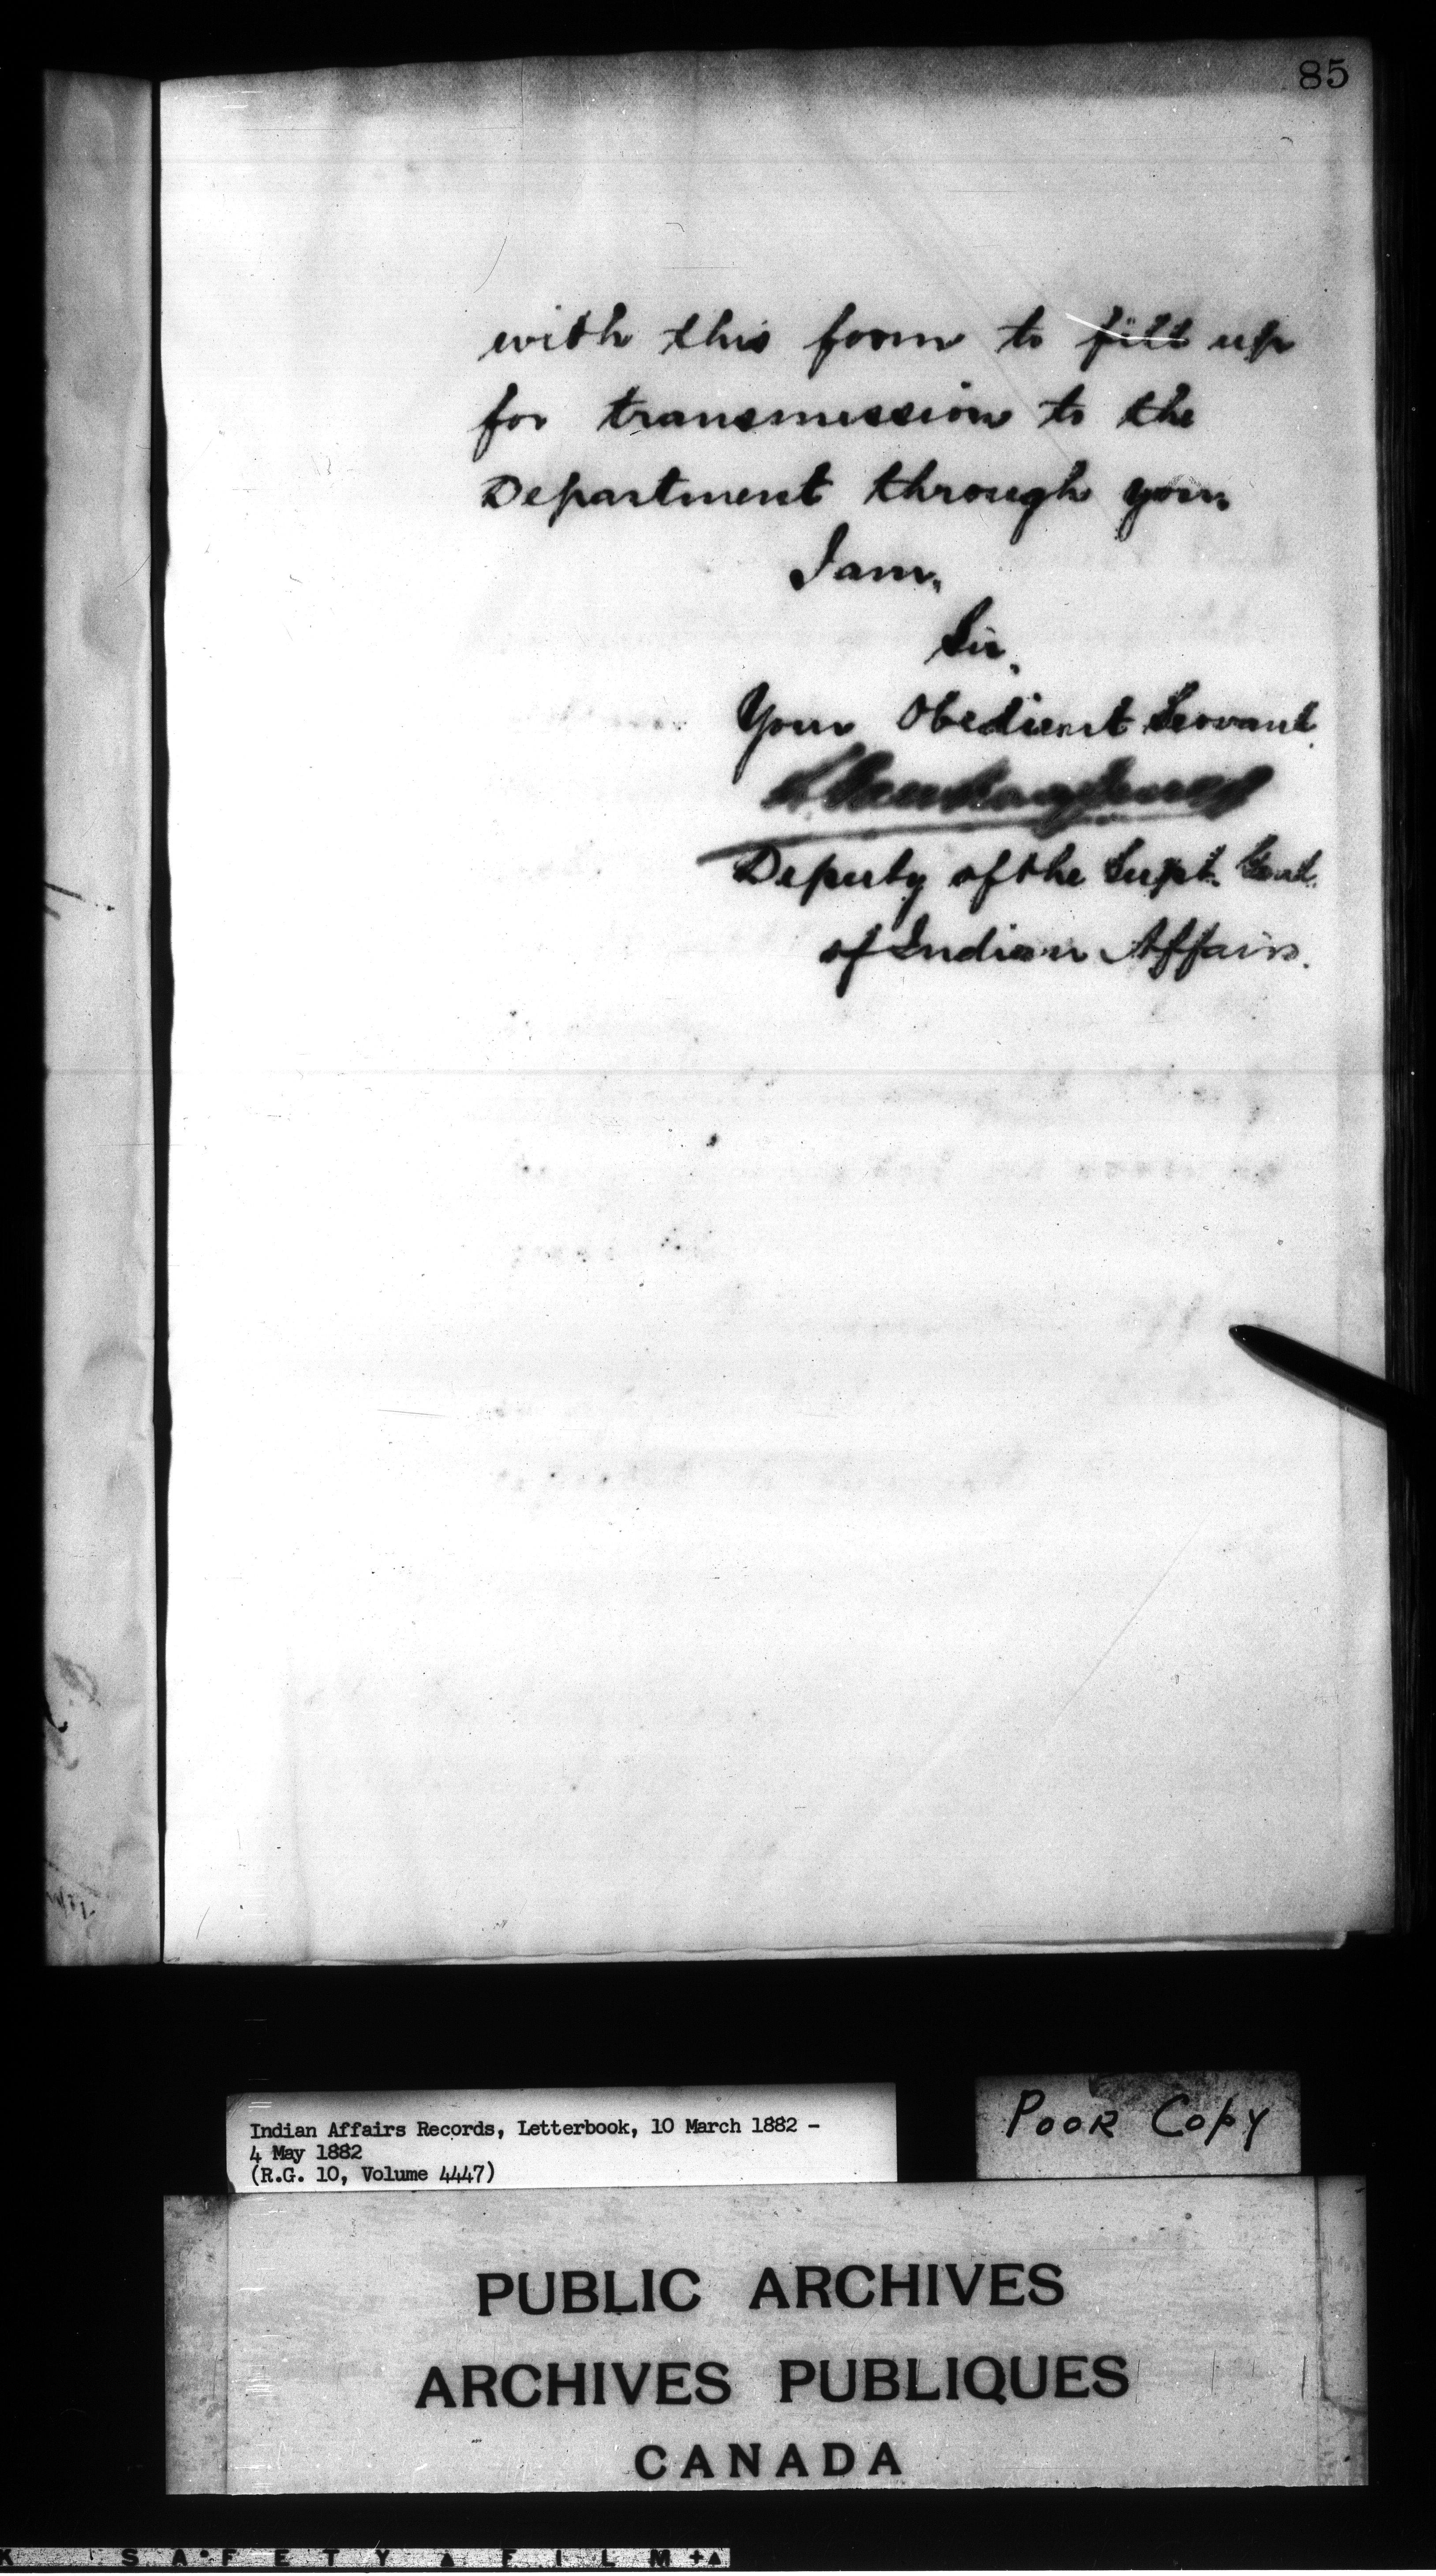 85
with this form to fill up
for transmission to the
Department through you.
I am,
Sir,
Your Obedient Servant
Deputy of the Supt. Genl.
of Indian Affairs.
Indian Affairs Records, Letterbook, 10 March 1882 -
4 May 1882
(R.G. 10, Volume 4447)
POOR COPY
PUBLIC ARCHIVES
ARCHIVES PUBLIQUES
CANADA
K SAFETY FILM